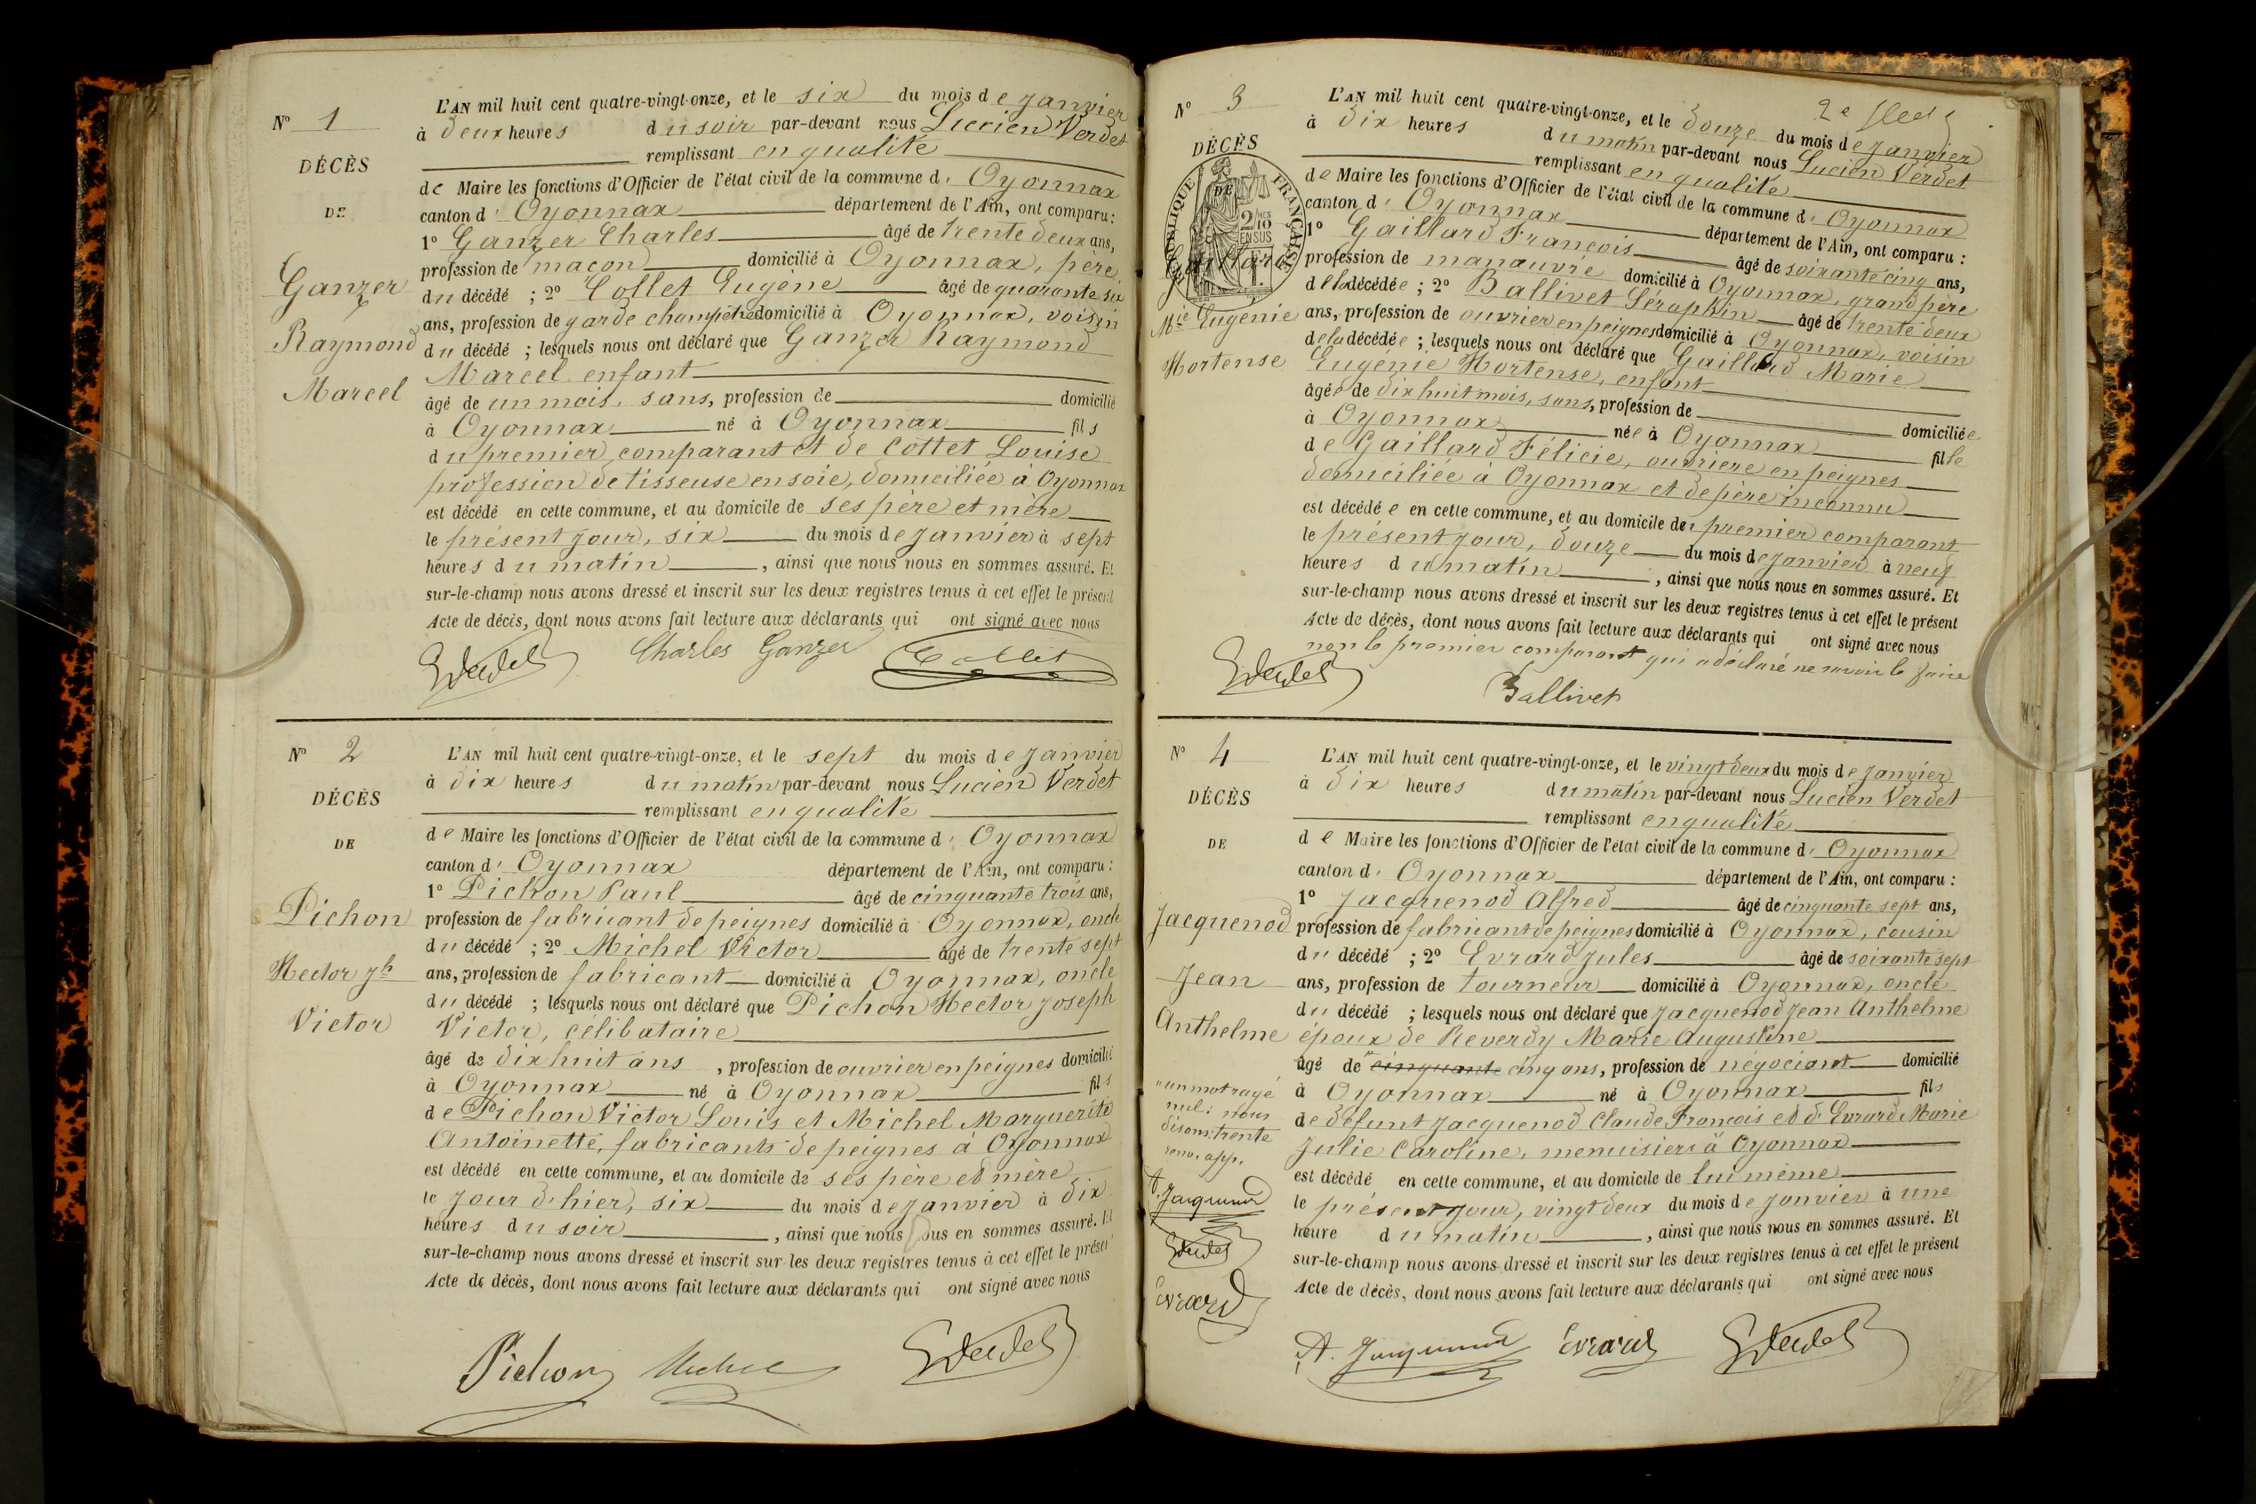 N° 1
DÉCÈS
DE
Ganzer
Raymond
Marcel
L'AN mil huit cent quatre-vingt-onze, et le six du mois de janvier
à deux heures du soir par-devant nous Lucien Verdet
remplissant en qualité
de Maire les fonctions d'Officier de l'état civil de la commune d' Oyonnax
canton d' Oyonnax département de l'Ain, ont comparu :
1° Ganzer Charles âgé de trente deux ans,
profession de maçon domicilié à Oyonnax, père
du décédé ; 2° Collet Eugène âgé de quarante six
ans, profession de garde champêtre domicilié à Oyonnax, voisin
du décédé ; lesquels nous ont déclaré que Ganzer Raymond
Marcel enfant
âgé de un mois, sans, profession de domicilié
à Oyonnax né à Oyonnax fils
du premier comparant et de Cottet Louise
profession de tisseuse en soie, domiciliée à Oyonnax
est décédé en cette commune, et au domicile de ses père et mère
le présent jour, six du mois de janvier à sept
heures du matin, ainsi que nous nous en sommes assuré. Et
sur-le-champ nous avons dressé et inscrit sur les deux registres tenus à cet effet le présent
Acte de décès, dont nous avons fait lecture aux déclarants qui ont signé avec nous
Charles Ganzer
N° 2
DÉCÈS
DE
Pichon
Hector Jh
Victor
L'AN mil huit cent quatre-vingt-onze, et le sept du mois de janvier
à dix heures du matin par-devant nous Lucien Verdet
remplissant en qualité
de Maire les fonctions d'Officier de l'état civil de la commune d' Oyonnax
canton d' Oyonnax département de l'Ain, ont comparu :
1° Pichon Paul âgé de cinquante trois ans,
profession de fabricant de peignes domicilié à Oyonnax, oncle
du décédé ; 2° Michel Victor âgé de trente sept
ans, profession de fabricant domicilié à Oyonnax, oncle
du décédé ; lesquels nous ont déclaré que Pichon Hector Joseph
Victor, célibataire
âgé de dix huit ans, profession de ouvrier en peignes domicilié
à Oyonnax né à Oyonnax fils
de Pichon Victor Louis et Michel Marguerite
Antoinette, fabricants de peignes à Oyonnax
est décédé en cette commune, et au domicile de ses père et mère
le jour d'hier, six du mois de janvier à dix
heures du soir, ainsi que nous nous en sommes assuré. Et
sur-le-champ nous avons dressé et inscrit sur les deux registres tenus à cet effet le présent
Acte de décès, dont nous avons fait lecture aux déclarants qui ont signé avec nous
Pichon Michel
N° 3
DÉCÈS
RÉPUBLIQUE FRANÇAISE
DE
2/10
EN SUS
Mie Eugénie
Hortense
L'AN mil huit cent quatre-vingt-onze, et le douze du mois de janvier
à dix heures du matin par-devant nous Lucien Verdet
remplissant en qualité
de Maire les fonctions d'Officier de l'état civil de la commune d' Oyonnax
canton d' Oyonnax département de l'Ain, ont comparu :
1° Gaillard François âgé de soixante cinq ans,
profession de manœuvre domicilié à Oyonnax, grand père
de la décédée ; 2° Ballivet Séraphin âgé de trente deux
ans, profession de ouvrier en peignes domicilié à Oyonnax, voisin
de la décédée ; lesquels nous ont déclaré que Gaillard Marie
Eugénie Hortense, enfant
âgée de dix huit mois, sans, profession de domiciliée
à Oyonnax née à Oyonnax fille
de Gaillard Félicie, ouvrière en peignes
domiciliée à Oyonnax et de père inconnu
est décédée en cette commune, et au domicile du premier comparant
le présent jour, douze du mois de janvier à neuf
heures du matin, ainsi que nous nous en sommes assuré. Et
sur-le-champ nous avons dressé et inscrit sur les deux registres tenus à cet effet le présent
Acte de décès, dont nous avons fait lecture aux déclarants qui ont signé avec nous
non le premier comparant qui a déclaré ne savoir le faire
Ballivet
N° 4
DÉCÈS
DE
Jacquenod
Jean
Anthelme
un mot rayé
nul : nous
disons : trente
A. Jacquenod
Evrard
L'AN mil huit cent quatre-vingt-onze, et le vingt deux du mois de janvier
à dix heures du matin par-devant nous Lucien Verdet
remplissant en qualité
de Maire les fonctions d'Officier de l'état civil de la commune d' Oyonnax
canton d' Oyonnax département de l'Ain, ont comparu :
1° Jacquenod Alfred âgé de cinquante sept ans,
profession de fabricant de peignes domicilié à Oyonnax, cousin
du décédé ; 2° Evrard Jules âgé de soixante sept
ans, profession de tourneur domicilié à Oyonnax, oncle
du décédé ; lesquels nous ont déclaré que Jacquenod Jean Anthelme
époux de Reverdy Marie Augustine
âgé de cinquante cinq ans, profession de négociant domicilié
à Oyonnax né à Oyonnax fils
de défunt Jacquenod Claude François et d' Evrard Marie
Julie Caroline, menuisiers à Oyonnax
est décédé en cette commune, et au domicile de lui même
le présent jour, vingt deux du mois de janvier à une
heure du matin, ainsi que nous nous en sommes assuré. Et
sur-le-champ nous avons dressé et inscrit sur les deux registres tenus à cet effet le présent
Acte de décès, dont nous avons fait lecture aux déclarants qui ont signé avec nous
A. Jacquenod Evrard